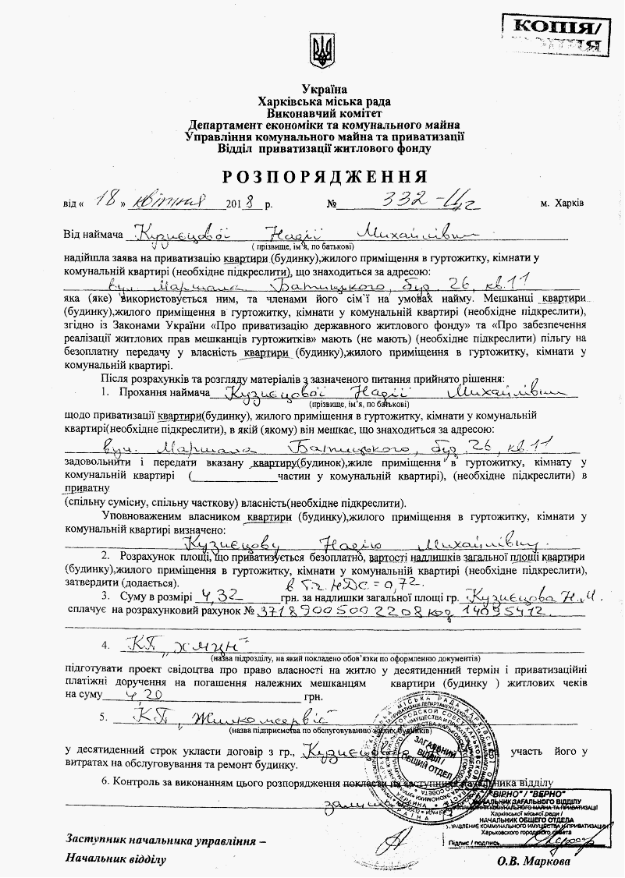 КОПІЯ/
КОПИЯ
Україна
Харківська міська рада
Виконавчий комітет
Департамент економіки та комунального майна
Управління комунального майна та приватизації
Відділ приватизації житлового фонду
РОЗПОРЯДЖЕННЯ
від « 18 » квітня 2018 р. № 332-Ц2 м. Харків
Від наймача Кузнєцової Надії Михайлівни
( прізвище, ім'я, по батькові)
надійшла заява на приватизацію квартири (будинку),жилого приміщення в гуртожитку, кімнати у
комунальній квартирі (необхідне підкреслити), що знаходиться за адресою:
вул. Маршала Батицького, буд. 26, кв.11
яка (яке) використовується ним, та членами його сім`ї на умовах найму. Мешканці квартири
(будинку),жилого приміщення в гуртожитку, кімнати у комунальній квартирі (необхідне підкреслити),
згідно із Законами України «Про приватизацію державного житлового фонду» та «Про забезпечення
реалізації житлових прав мешканців гуртожитків» мають (не мають) (необхідне підкреслити) пільгу на
безоплатну передачу у власність квартири (будинку),жилого приміщення в гуртожитку, кімнати у
комунальній квартирі.
Після розрахунків та розгляду матеріалів з зазначеного питання прийнято рішення:
1. Прохання наймача Кузнєцової Надії Михайлівни
(прізвище, ім'я, по батькові)
щодо приватизації квартири(будинку), жилого приміщення в гуртожитку, кімнати у комунальній
квартирі(необхідне підкреслити), в якій (якому) він мешкає, що знаходиться за адресою:
вул. Маршала Батицького, буд. 26, кв.11
задовольнити і передати вказану квартиру(будинок),жиле приміщення в гуртожитку, кімнату у
комунальній квартирі (____________ частин у комунальній квартирі), (необхідне підкреслити) в
приватну
(спільну сумісну, спільну часткову) власність(необхідне підкреслити).
Уповноваженим власником квартири (будинку),жилого приміщення в гуртожитку, кімнати у
комунальній квартирі визначено:
Кузнєцову Надію Михайлівну.
2. Розрахунок площі, що приватизується безоплатно, вартості надлишків загальної площі квартири
(будинку),жилого приміщення в гуртожитку, кімнати у комунальній квартирі (необхідне підкреслити),
затвердити (додається). в т.ч НДС = 0,72.
3. Суму в розмірі 4,32 грн. за надлишки загальної площі гр. Кузнєцова Н.М.
сплачує на розрахунковий рахунок № 37189005002208 код 14095412
4. КП „ЖМЦН"
(назва підрозділу, на який покладено обов'язки по оформленню документів)
підготувати проект свідоцтва про право власності на житло у десятиденний термін і приватизаційні
платіжні доручення на погашення належних мешканцям квартири (будинку ) житлових чеків
на суму 4,20 грн.
5. КП „Жилкомсервіс"
(назва підприємства по обслуговуванню житлових будинків)
у десятиденний строк укласти договір з гр., Кузнєцовою участь його у
витратах на обслуговування та ремонт будинку.
6. Контроль за виконанням цього розпорядження покласти на заступника начальника відділу
ЗАГАЛЬНИЙ
ВІДДІЛ /
ОБЩИЙ ОТДЕЛ
"ВІРНО" / "ВЕРНО"
НАЧАЛЬНИК ЗАГАЛЬНОГО ВІДДІЛУ
УПРАВЛІННЯ КОМУНАЛЬНОГО МАЙНА ТА ПРИВАТИЗАЦІЇ
Харківської міської ради /
НАЧАЛЬНИК ОБЩЕГО ОТДЕЛА
УПРАВЛЕНИЕ КОММУНАЛЬНОГО ИМУЩЕСТВА И ПРИВАТИЗАЦИИ
Харьковского городского совета
Підпис / подпись
Заступник начальника управління –
Начальник відділу О.В. Маркова